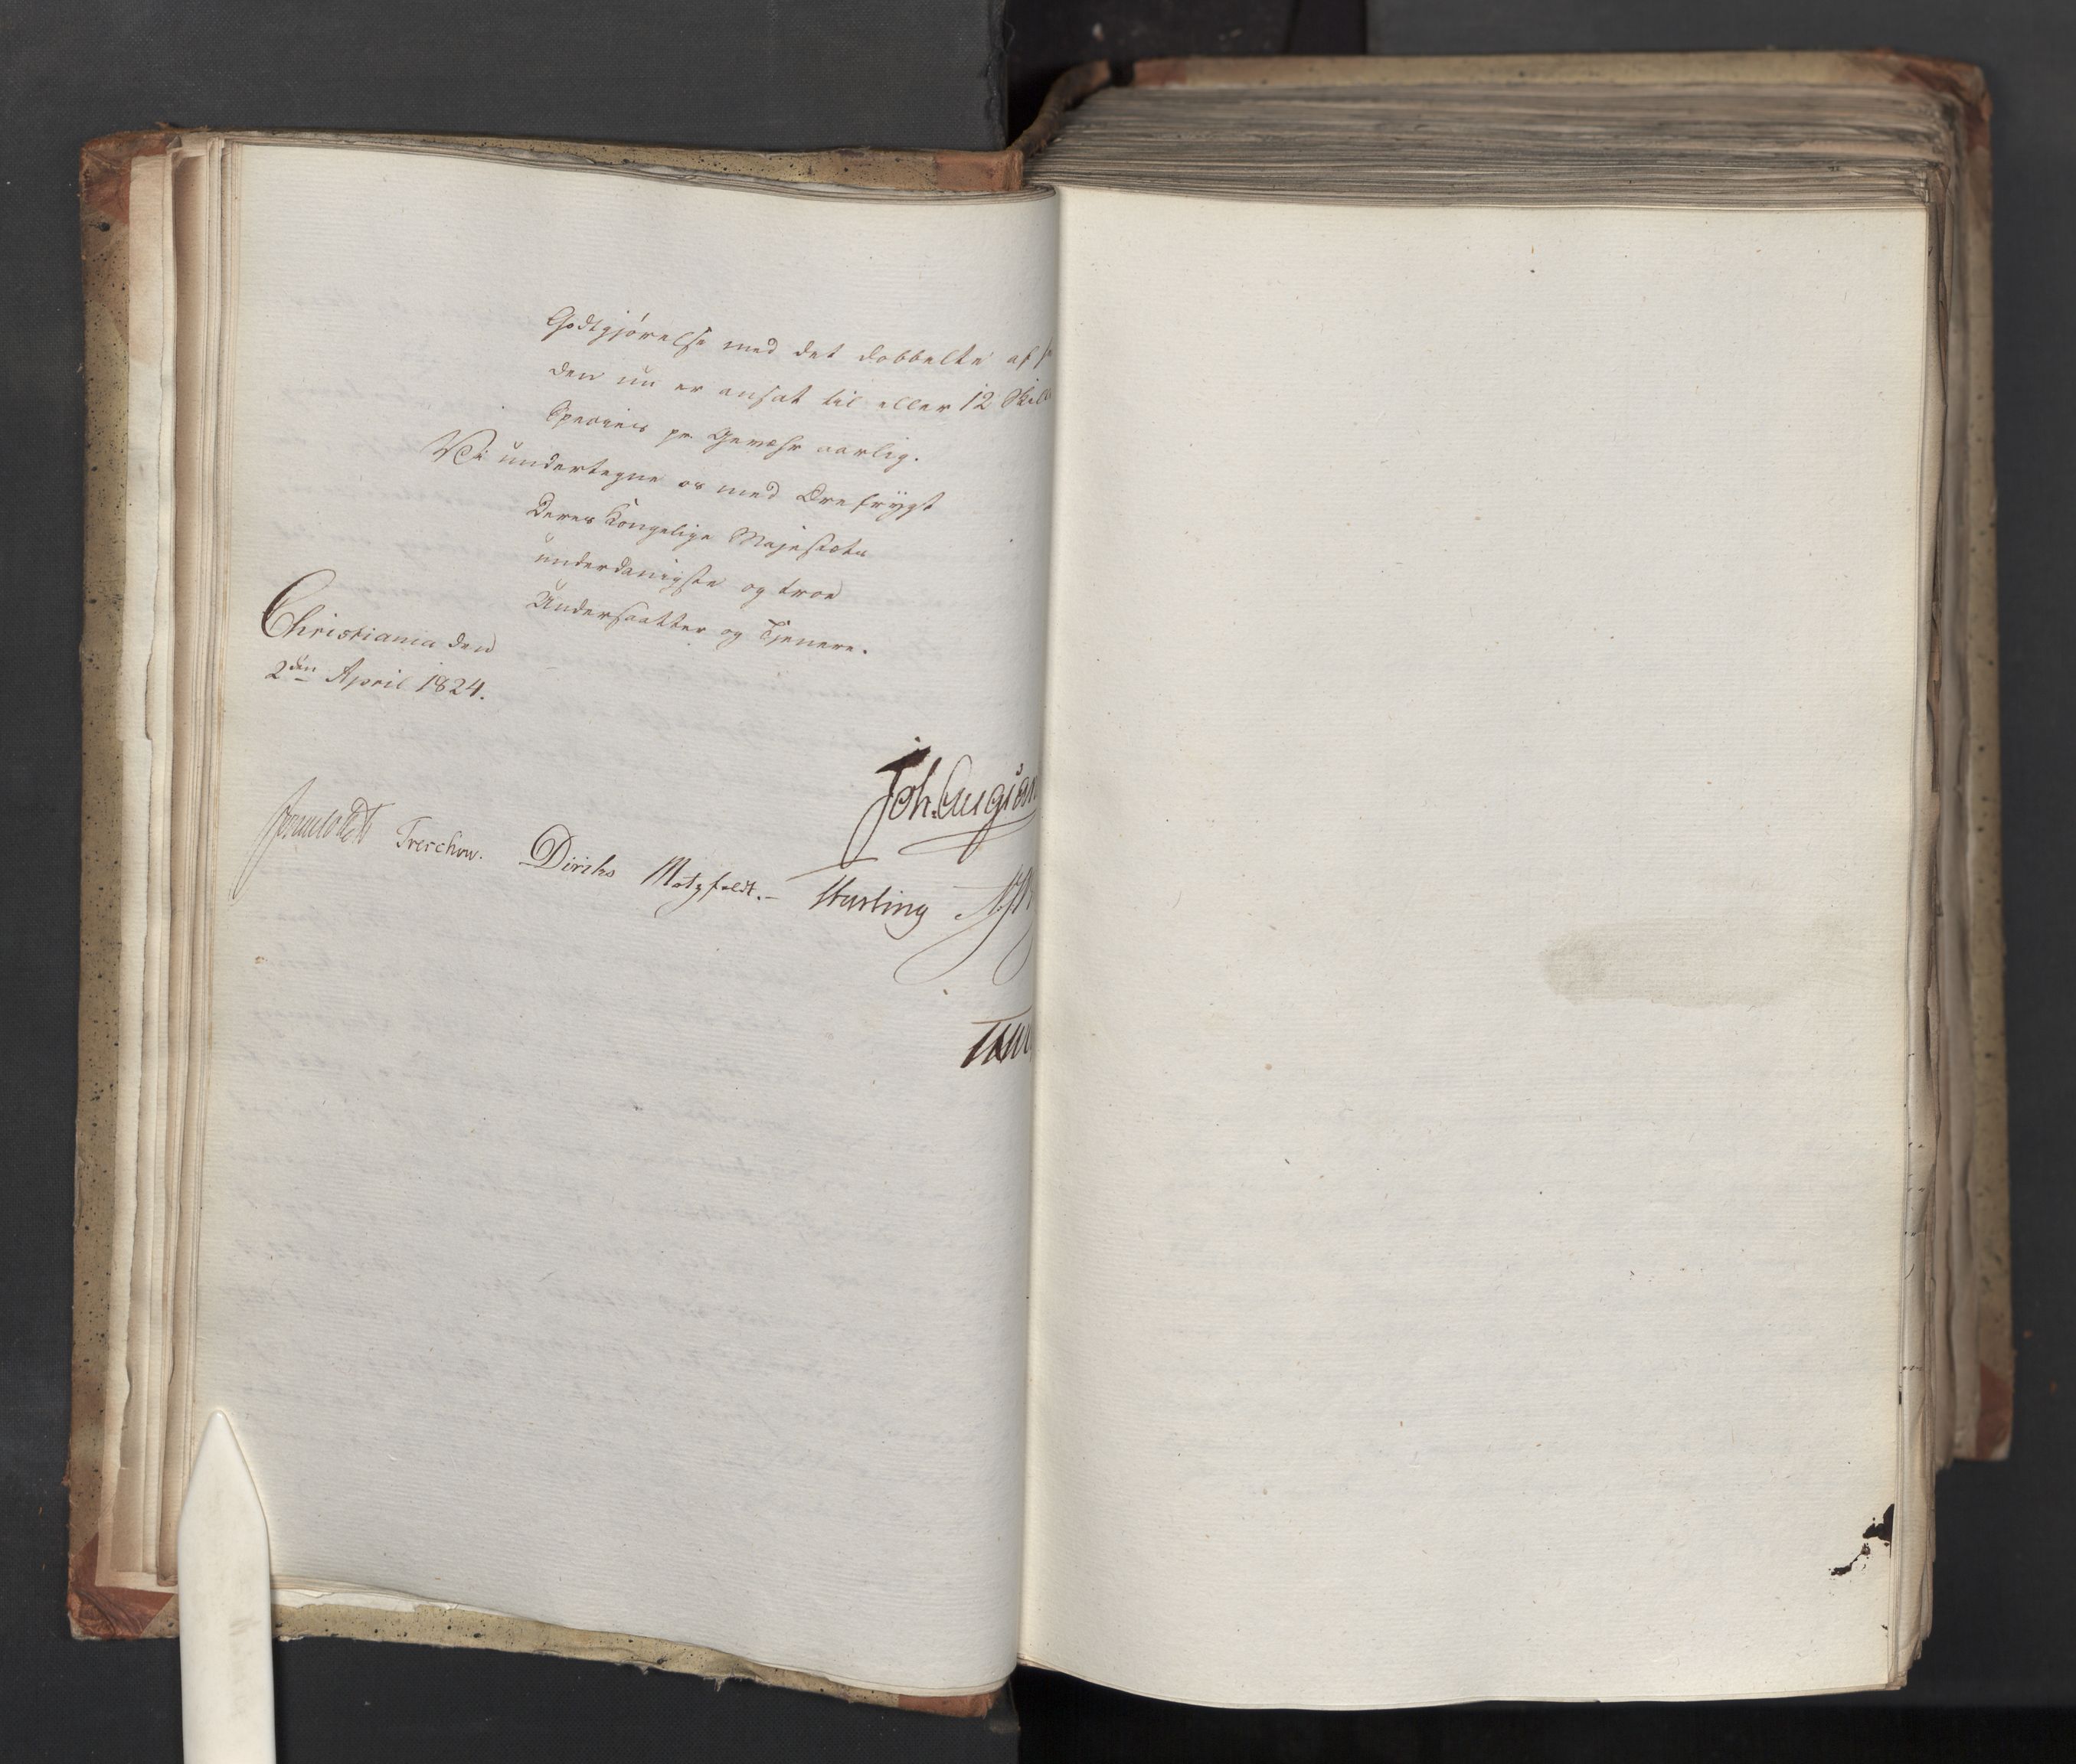 Godtgjørelse med det dobbelte af
den nu er ansat til eller 12 Skill
Species pr Gewehr aarlig.
Vi undertegne os med Ærefrygt
Deres Kongelige Majestæts
underdanigste og troe
Undersaatter og Tjenere.
Christiania den
2den April 1824.
Joh. Aug: San
Sommerfeldt Treschow. Diriks Motzfeldt.- Hasting